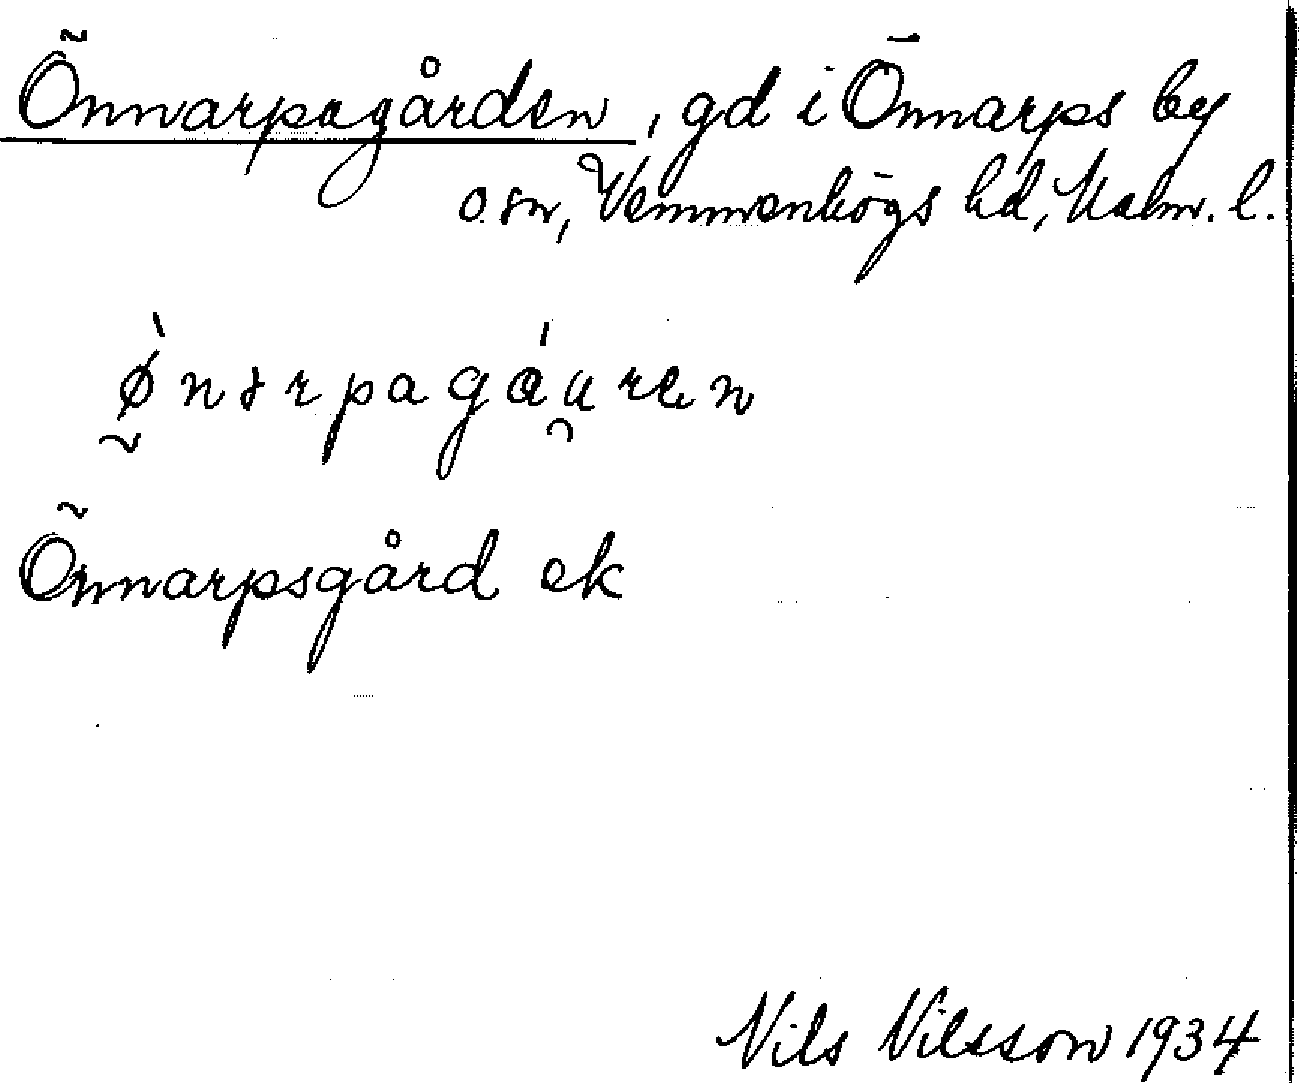 Önnarpagården, gd i Önnarps by
o. sn, Vemmenhögs hd, Malm. l.
ø̰̀nərpagáu̯ren
Önnarpsgård ek
Nils Nilsson 1934